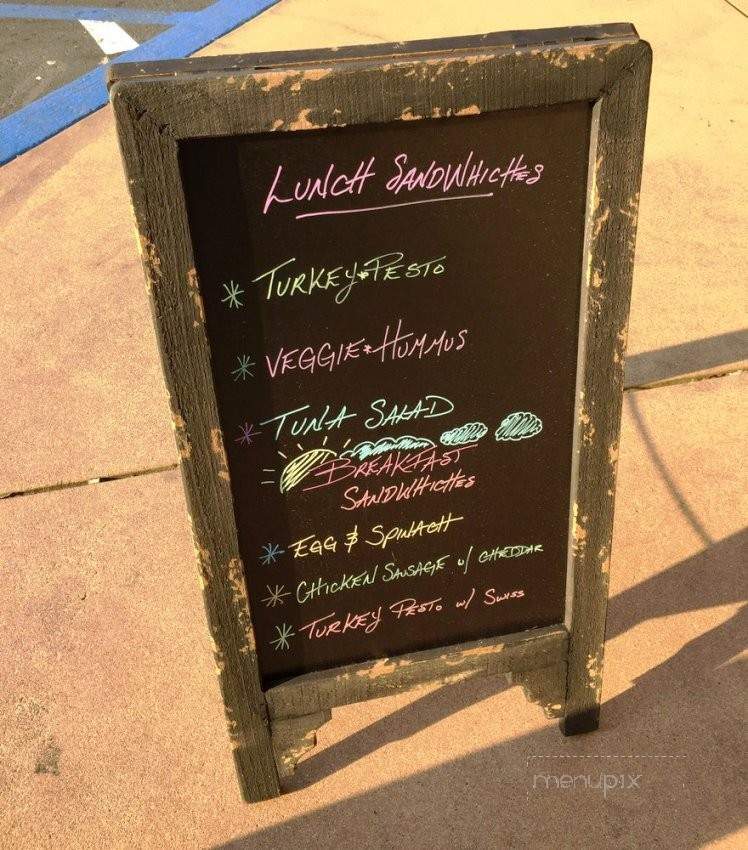 LUNCH SANDWHICHES
* TURKEY*PESTO
* VEGGIE*HUMMUS
* TUNA SALAD
BREAKFAST
SANDWHICHES
* EGG & SPINACH
* CHICKEN SAUSAGE w/ CHEDDAR
* TURKEY PESTO w/ SWISS
menupix